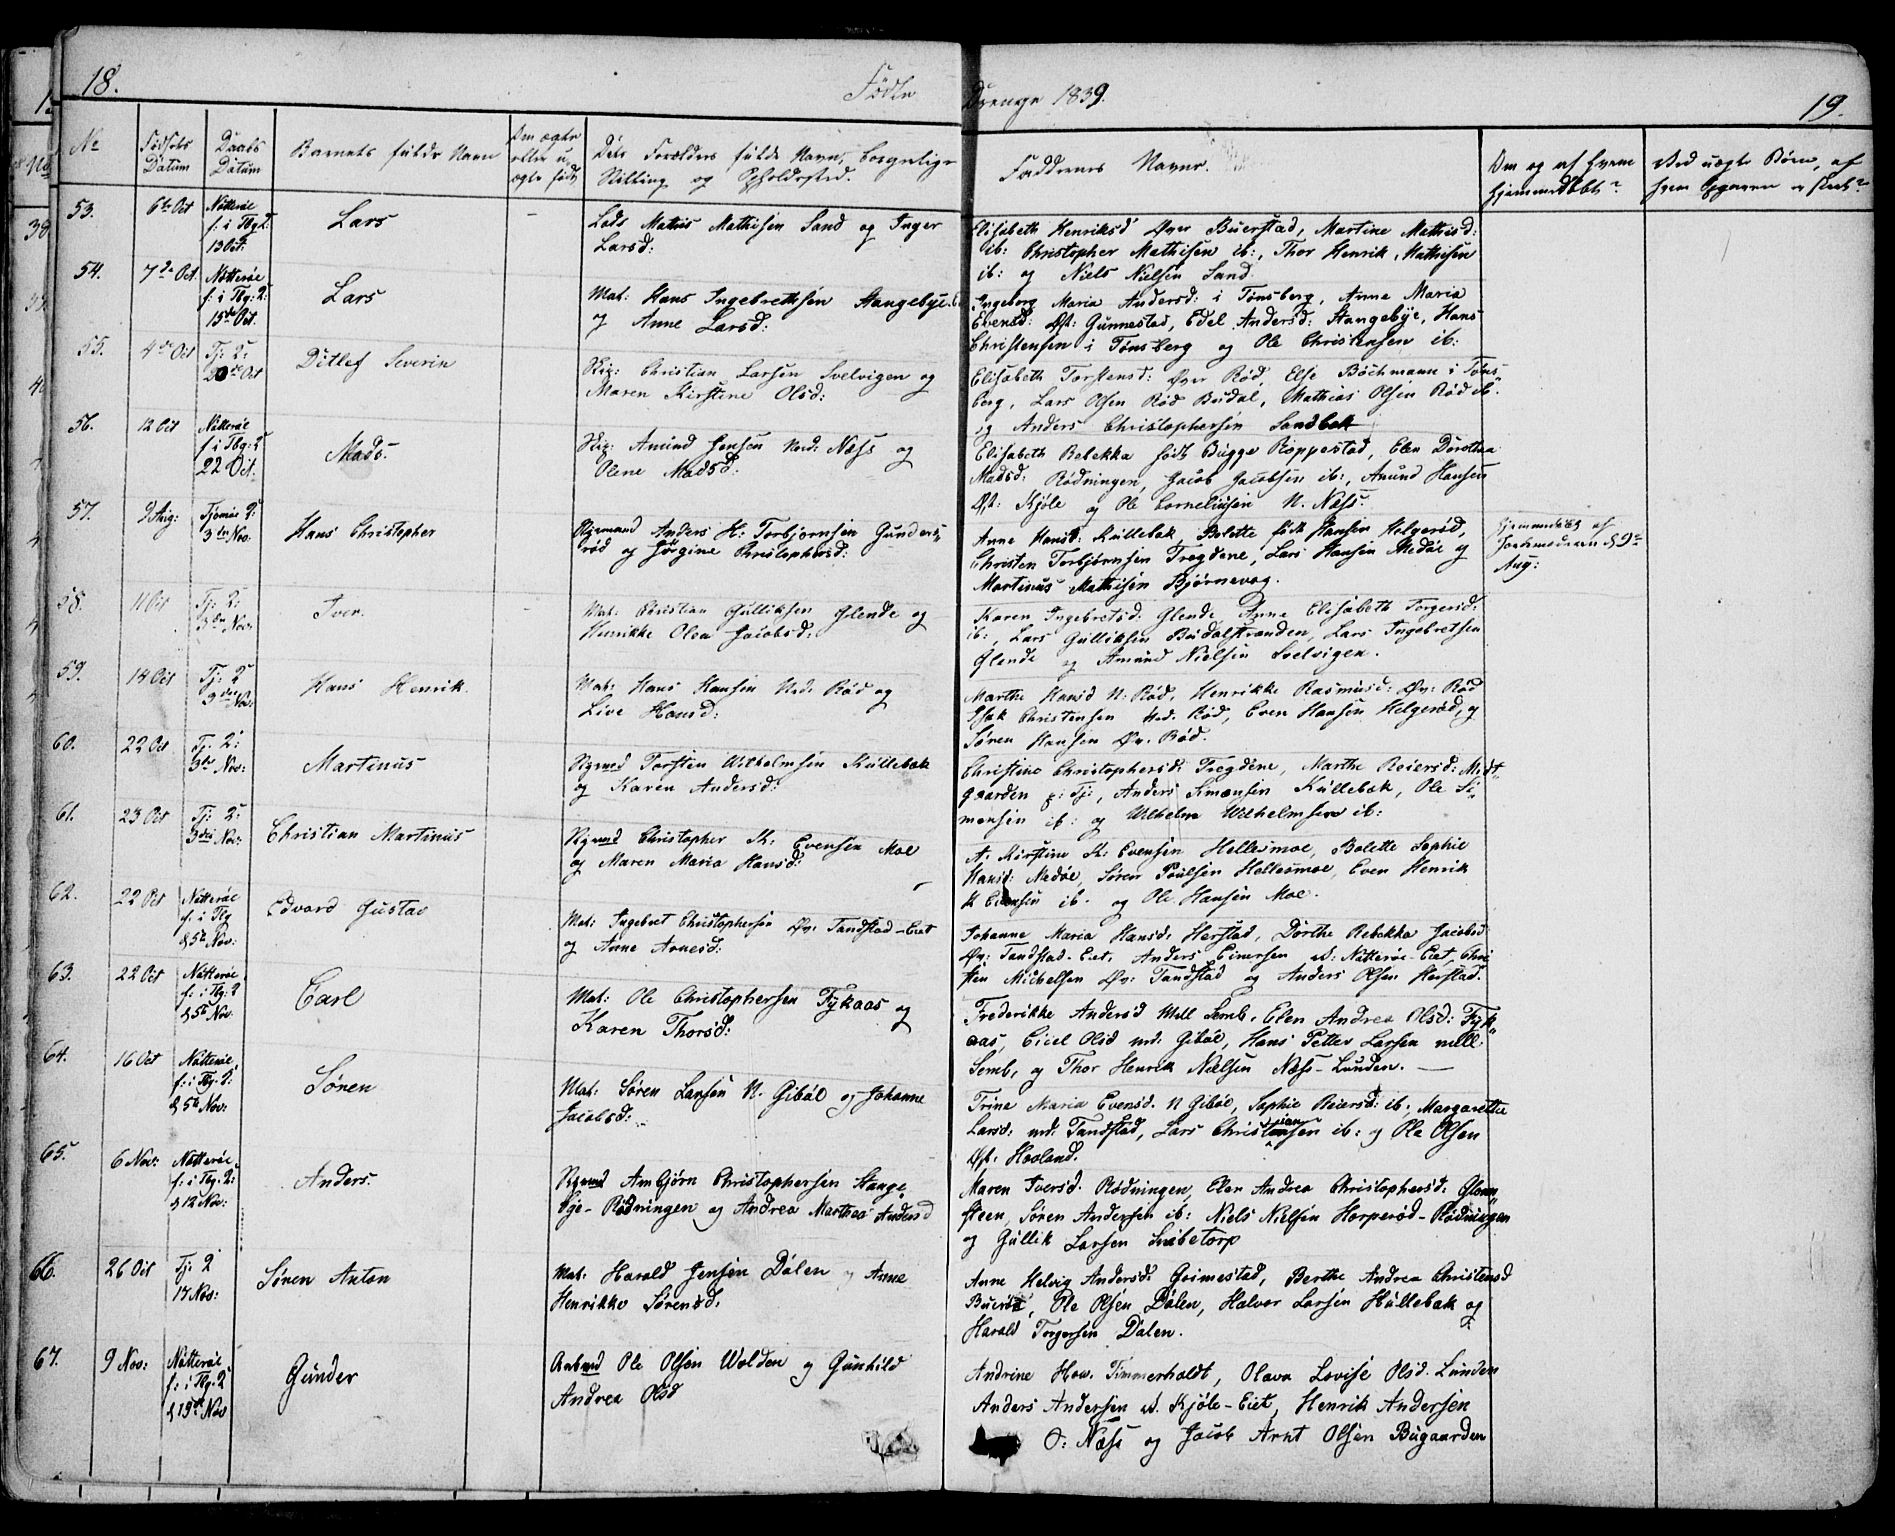 18.
Fødte
Drenge 1839.
19.
No
Fødsels Datum
Daabs Datum
Barnets fulde Navn
Om ægte eller uægte født
Dets Forældres fulde Navn, borgerlige Stilling og Opholdssted.
Faddernes Navne.
Om og af hvem hjemmedøbt?
Ved uægte Børn, af hvem Opgaven er skeet?
53.
6te Oct
Nötteröe
f: i Tbg 2:
13 Oct:
Lars
–
Lods Mathis Mathisen Sand og Inger
Larsd:
Elisabeth Henriksd Øvr Buerstad, Martine Mathisd:
ib: Christopher Mathisen ib:, Thor Henrik Mathisen
ib: og Niels Nielsen Sand.
54.
7de Oct
Nötteröe
f: i Tbg: 2:
15de Oct.
Lars
Mat: Hans Ingebrethsen Stangebye
og Anne Larsd:
Ingeborg Maria Andersd: i Tønsberg, Anne Maria
Evensd: Øst: Gunnestad, Edel Andersd: Stangebye, Hans
Christensen i Tønsberg og Ole Christensen ib:
55.
4de Oct
Tj: 2:
20de Oct
Ditlef Severin
Skip: Christian Larsen Svelvigen og
Maren Kirstine Olsd:
Elisabeth Torstensd: Øvr Rød, Else Böchmann i Töns-
berg, Lars Olsen Rød Budal, Mathias Olsen Rød ib.
og Anders Christophersen Sandbek
56.
12 Oct
Nötteröe
f i Tbg: 2
22 Oct.
Mads.
Skip: Amund Jensen Ned: Næss og
Olene Madsd:
Elisabeth Rebekka født Bugge Roppestad, Elen Dorothea
Madsd: Rødningen, Jacob Jacobsen ib:, Amund Hansen
Øst: Kjøle og Ole Corneliusen N. Næss.
57.
9 Aug:
Tjømöe 2:
3die Nov:
Hans Christopher
Styrmand Anders H: Torbjørnsen Gunders-
rød og Jørgine Christophersd:
Anne Hansd: Kullebek, Bolette født Hansen Helgerød,
Christen Torbjørnsen Tregdene, Lars Hansen Medöe og
Martinus Mathisen Bjørnevog.
hjemmedøbt af
Jordemoderen d 9de
Aug:
58.
11 Oct
Tj: 2:
3die Nov:
Iver.
Mat: Christian Gulliksen Glende og
Henrikke Olea Jacobsd:
Karen Ingebretsd: Glende, Anne Elisabeth Torgersd:
ib:, Lars Gulliksen Budalstranden, Lars Ingebretsen
Glende og Amund Nielsen Svelvigen.
59.
14 Oct
Tj: 2
3die Nov:
Hans Henrik.
Mat: Hans Hansen Ned: Rød og
Live Hansd:
Marthe Hansd N: Rød, Henrikke Rasmusd: Øv: Rød
Isak Christensen Ned. Rød, Even Hansen Helgerød, og
Søren Hansen Øv. Rød.
60.
22 Oct
Tj. 2:
3die Nov:
Martinus
Stýrmd Torsten Wilhelmsen Kullebæk
og Karen Andersd:
Christine Christophersd: Tregdene, Marthe Reiersd: Midt-
gaarden p: Tj:, Anders Simonsen Kullebæk, Ole Si-
monsen ib: og Wilhelm Wilhelmsen ib:
61.
23 Oct
Tj: 2:
3die Nov:
Christian Martinus
Styrmd Christopher K: Evensen Moe
og Maren Maria Hansd:
A: Kirstine K: Evensen Hellesmoe, Bolette Sophie
Hansd: Medöe, Søren Poulsen Hellesmoe, Even Henrik
K Evensen ib. og Ole Hansen Moe.
62.
22 Oct
Nötteröe
f: i Tbg
d 5te Nov:
Edvard Gustav
Mat: Ingebret Christophersen Øv: Tandstad-Eiet
og Anne Arnesd:
Johanne Maria Hansd: Herstad, Dorthe Rebekka Jacobsd
Øv: Tandstad-Eiet, Anders Einersen v: Nötteröe-Eiet, Chri
sten Michelsen Øv: Tandstad og Anders Olsen Herstad.
63.
22 Oct
Nötteröe
f: i Tbg: 2
d 5te Nov:
Carl
Mat: Ole Christophersen Fykaas og
Karen Thorsd:
Frederikke Andersd Mell Semb, Elen Andrea Olsd: Fyk-
aas, Cicel Olsd nd: Giböe, Hans Petter Larsen mell:
Semb, og Thor Henrik Nielsen Næss-Lunden.
64.
16 Oct
Nötteröe
f: i Tbg. 2:
d 5te Nov:
Søren
Mat: Søren Larsen N. Giböe og Johanne
Jacobsd:
Trine Maria Evensd. N Giböe, Sophie Reiersd: ib:, Margarethe
Larsd: nd: Tandstad, Lars Christiansen ib: og Ole Olsen
Øst: Hooland.
65.
6 Nov:
Nötteröe
f: i Tbg. 2:
d 12 Nov:
Anders.
Styrmd Ambjørn Christophersen Stange-
bye-Rødningen og Andrea Marthea Andersd
Maren Iversd. Rødningen, Elen Andrea Christophersd: Glom-
steen, Søren Andersen ib: Niels Nielsen Horperød-Rødningen
og Gullik Larsen Svibetorp
66.
26 Oct
Tj: 2
17 Nov:
Sören Anton
Mat: Harald Jensen Dalen og Anne
Henrikke Sørensd.
Anne Helvig Andersd: Grimestad, Berthe Andrea Christensd
Buerød, Ole Olsen Dalen, Halvor Larsen Hullebak og
Harald Torgersen Dalen.
67.
9 Nov:
Nötteröe
f: i Tbg: 2
d 19de Nov
Gunder
Arbmd Ole Olsen Wolden og Gunhild
Andrea Olsd
Andrine How. Timmerholdt, Olava Lovise Olsd. Lunden
Anders Andersen v. Kjøle-Eiet, Henrik Andersen
O: Næss og Jacob Arnt Olsen Bugaarden